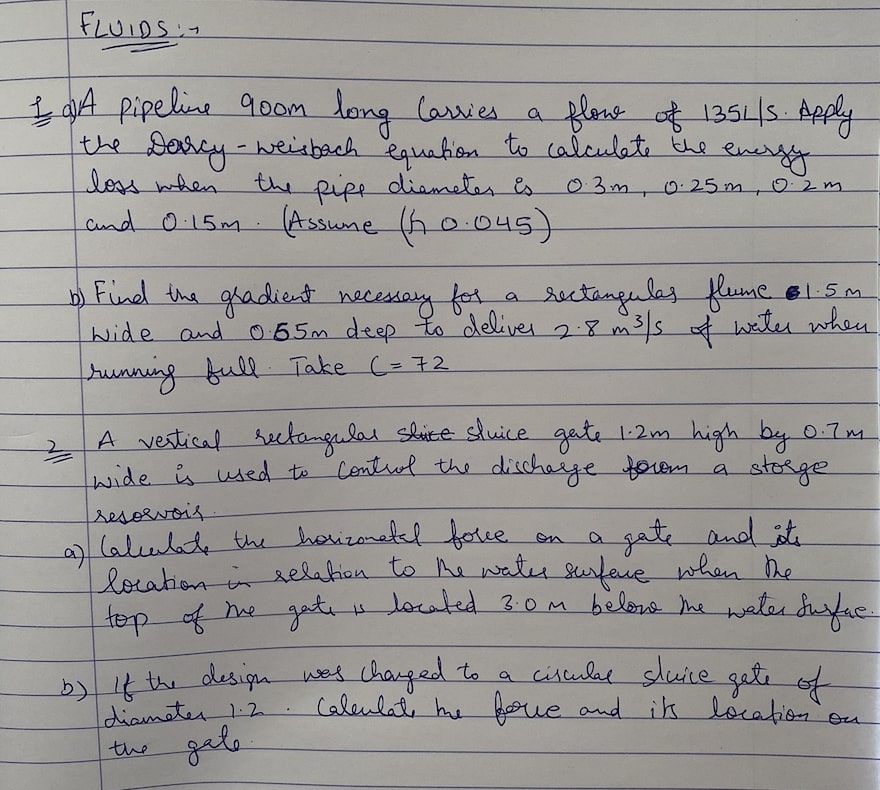 FLUIDS :-
1 a) A pipeline 900m long Carries a flow of 135L/s. Apply
the Darcy-weisbach equation to calculate the energy
loss when the pipe diameter is 0.3m, 0.25m, 0.2m
and 0.15m. (Assume (h 0.045)
b) Find the gradient necessary for a rectangular flume 1.5m
wide and 0.55m deep to deliver 2.8 m³/s of water when
running full. Take C = 72
2 A vertical rectangular sluice gate 1.2m high by 0.7m
wide is used to control the discharge forom a storge
resorvois.
a) Calculate the horizonatal force on a gate and its
location in relation to the water surfave when the
top of the gate is located 3.0 m below the water Surfac.
b) If the design was changed to a circular sluice gate of
diameter 1.2. Calculate the force and its location on
the gate.